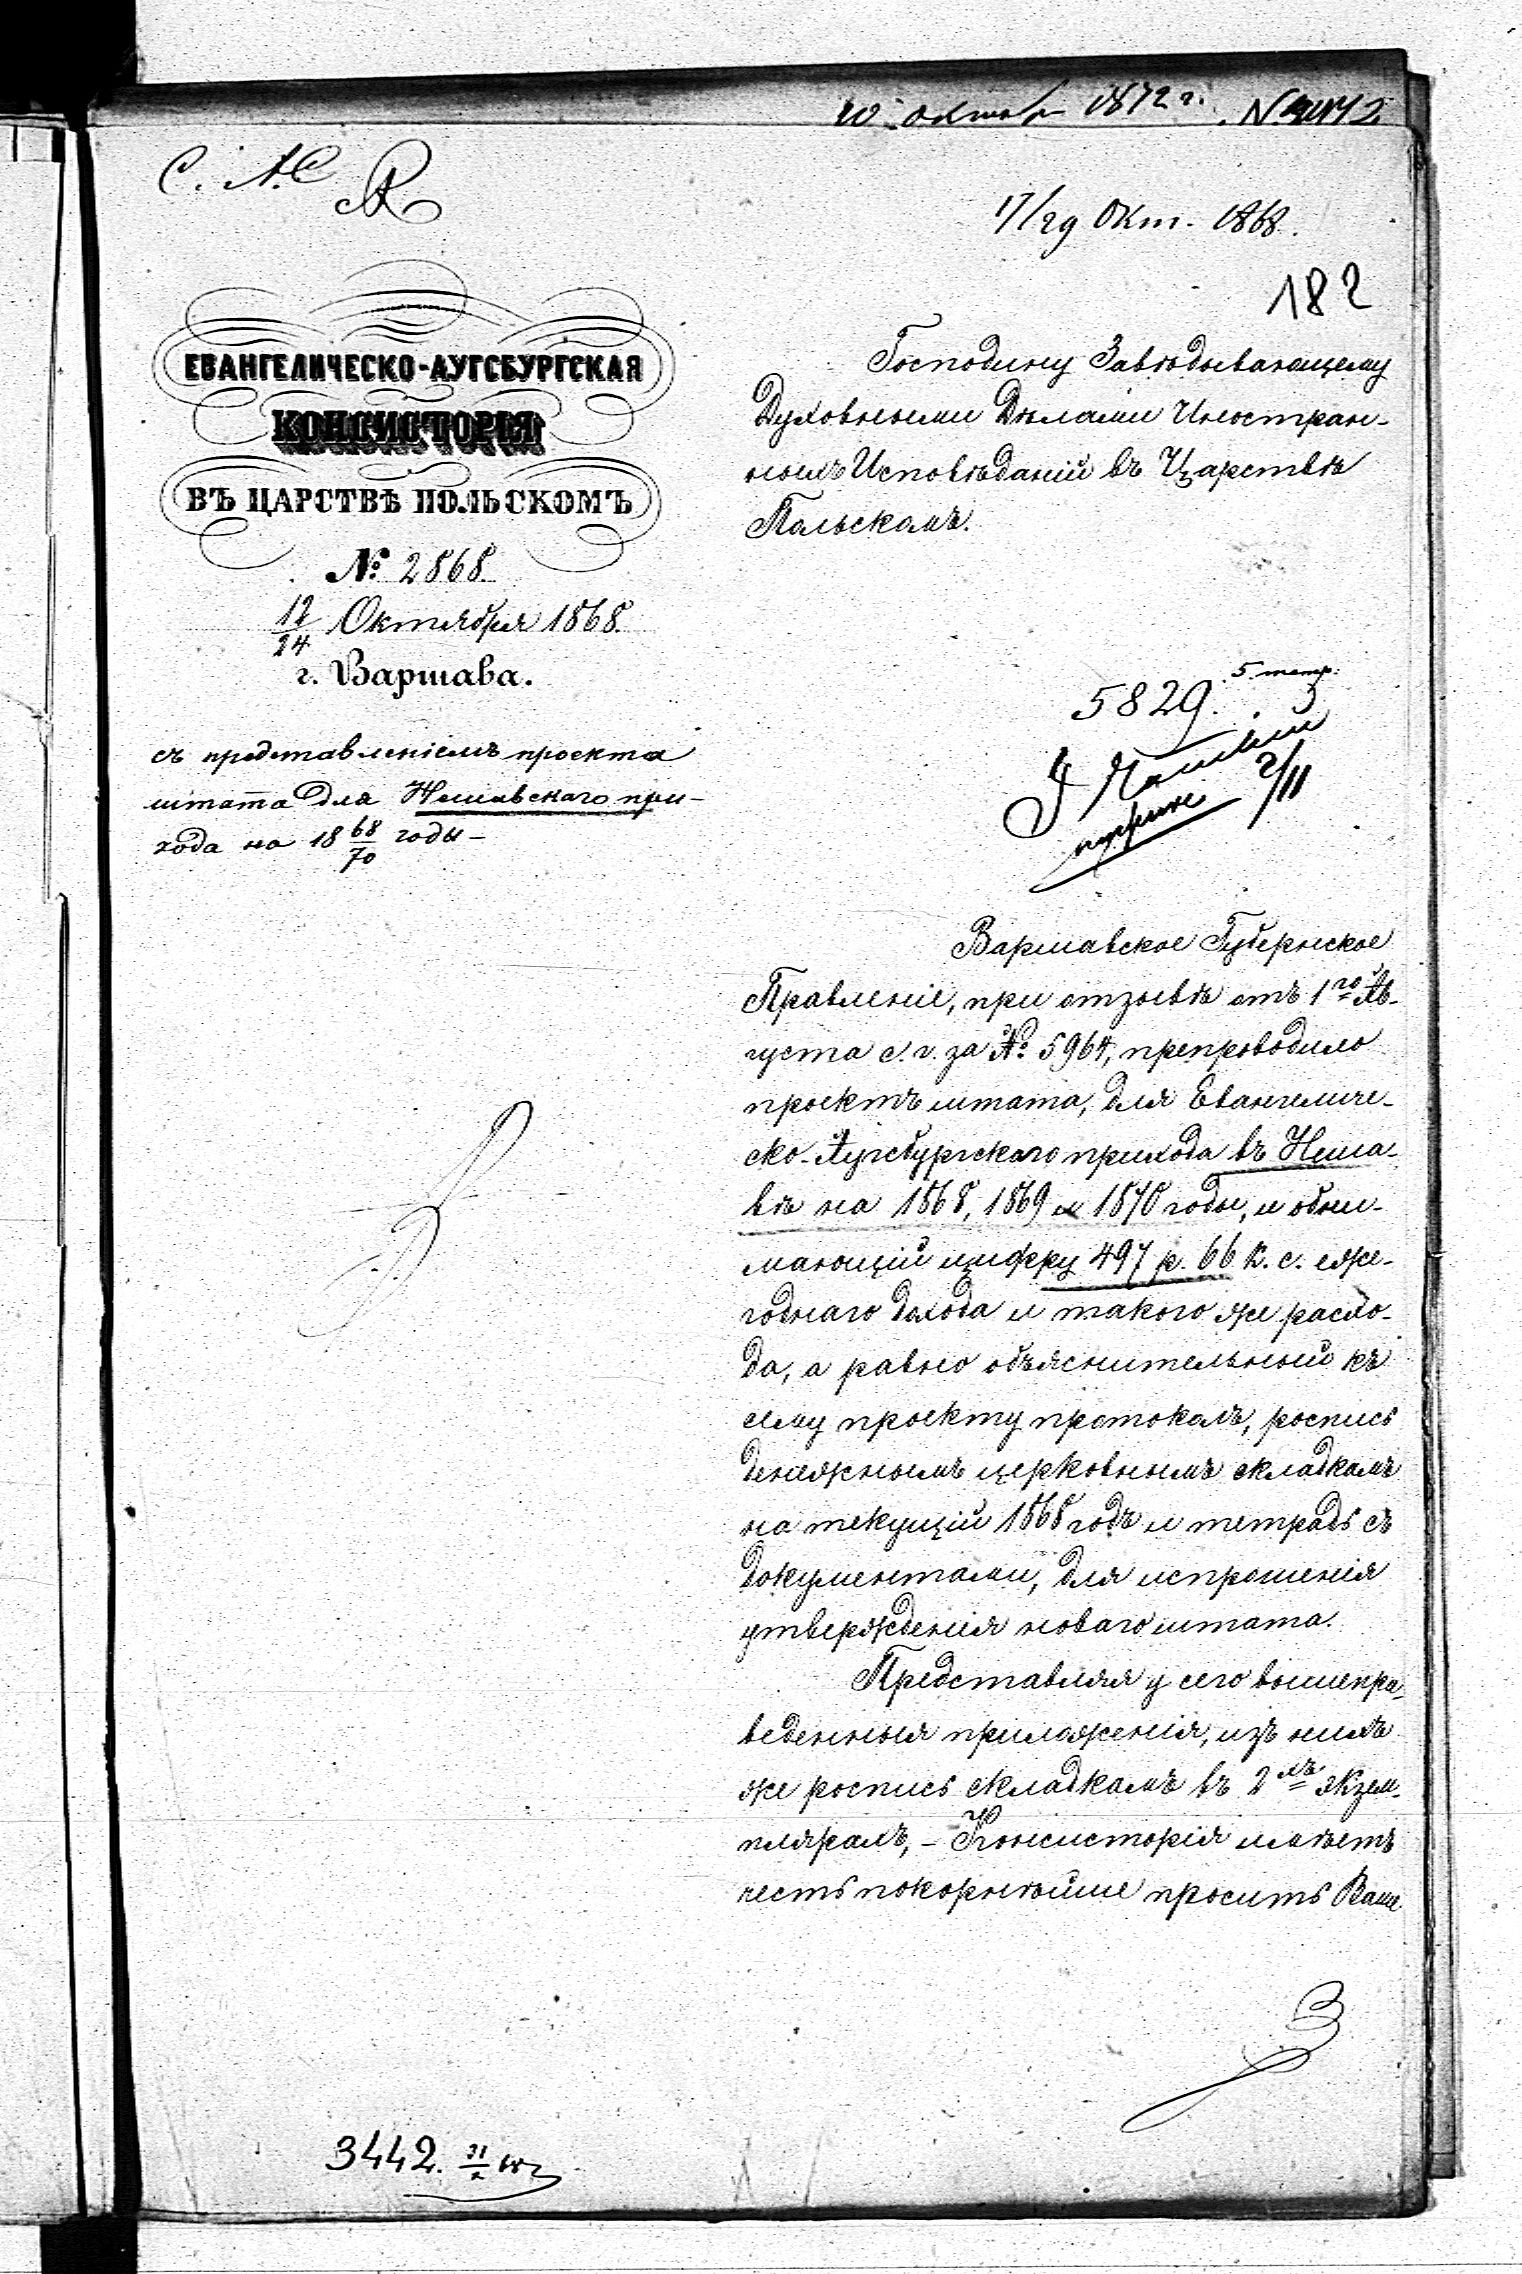 10 октяб 1872 г. №
С. А. С
17/29 Окт. 1868.
182
ЕВАНГЕЛИЧЕСКО-АУГСБУРГСКАЯ
КОНСИСТОРІЯ
ВЪ ЦАРСТВѢ ПОЛЬСКОМЪ
№ 2868.
12/24 Октября 1868.
г. Варшава.
съ представленіемъ проекта
штата для Нешавскаго при-
хода на 18 68/70 годы –
Господину Завѣдывающему
Духовными Дѣлами Иностран-
ныхъ Исповѣданій въ Царствѣ
Польскомъ.
5829. 5 тетр.
2/11
Варшавское Губернское
Правленіе, при отзывѣ отъ 1го Ав-
густа с. г. за № 5964, препроводило
проектъ штата, для Евангеличе-
ско-Аугсбургскаго прихода въ Неша-
вѣ на 1868, 1869 и 1870 годы, и обни-
мающій цифру 497 р. 66 к. с. еже-
годнаго дохода и такого же расхо-
да, а равно объяснительный къ
сему проекту протоколъ, роспись
денежнымъ церковнымъ складкамъ
на текущій 1868 годъ и тетрадь съ
документами, для испрошенія
утвержденія новаго штата.
Представляя у сего вышепри-
веденныя приложенія, изъ нихъ
же роспись складкамъ въ 2хъ экзем-
плярахъ, – Консисторія имѣетъ
честь покорнѣйше просить Ваше
3442. 31/X